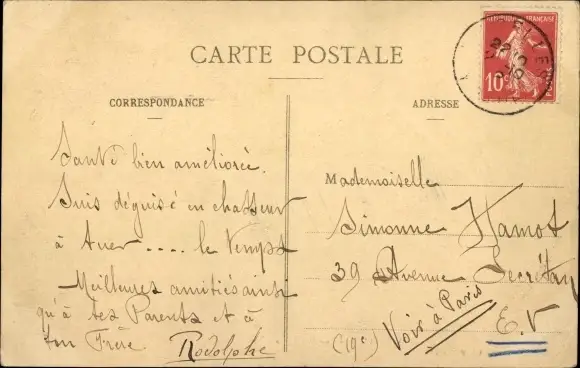 CARTE POSTALE
CORRESPONDANCE
ADRESSE
REPUBLIQUE FRANÇAISE
10c
POSTES
Santé bien améliorée.
Suis déguisé en chasseur
à tuer .... le temps
Meilleures amitiés ainsi
qu'à tes Parents et à
ton Frère
Rodolphe
Mademoiselle
Simonne Hamot
39 Avenue Secrétan
(19e) Voir à Paris
E.V